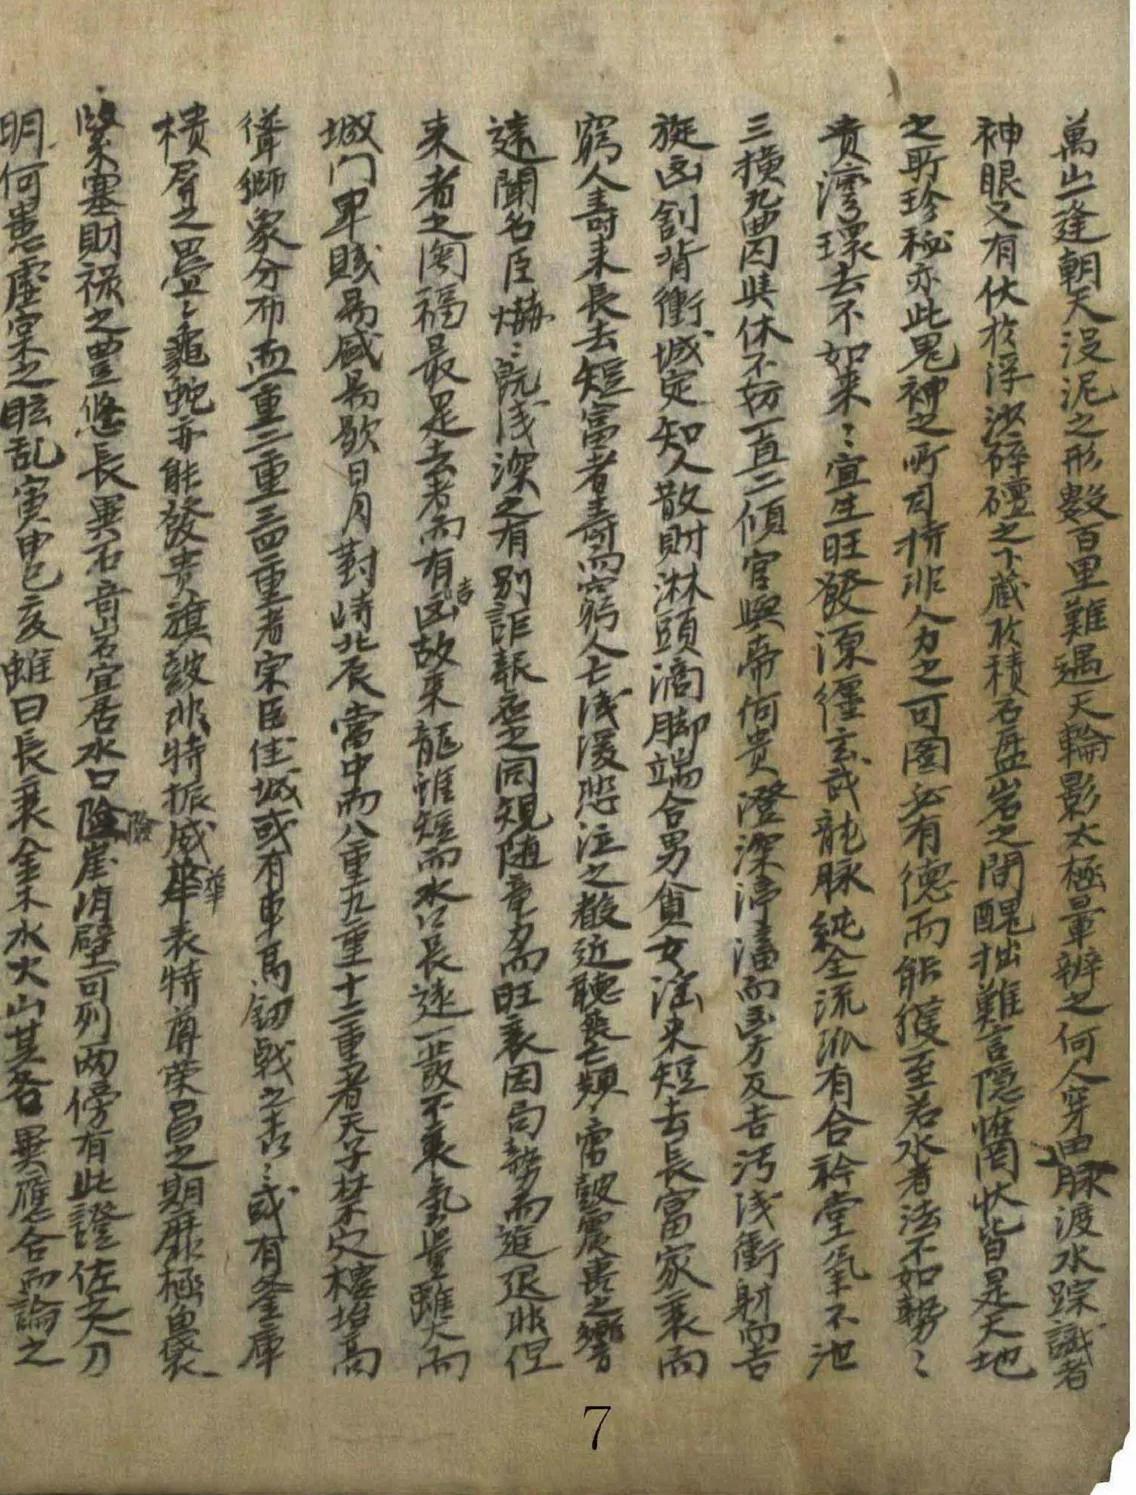 萬山一逢朝天沒泥之形數百里難遇天輪影太極暈辨之何人穿田脉渡水踪識者
神眼又有伏於浮沙碎礓之下藏於積石盤岩之間醜拙難言隱惟閟狀皆是天地
之所珍秘亦此鬼神之所司持非人力之可圖必有德而能獲至若水者法不如勢〻
貴灣環去不如來〻宜生旺發源纏玄武龍脉純全流派有合衿堂氣不池
三橫九曲囚與休不妨一直二傾官與帝何貴澄深渟滀而凶方反吉汚淺衝射而吉
旋凶割背衝城定知人散財淋頭滴脚端合男貧女淫來短去長富家衰而
窮人壽來長去短富者壽而窮人亡淺湲悲泣之散近聽喪亡類〻雷皷震喪之響
遠聞名臣爀〻旣淺深之有別詎報應之同規随章名而旺衰因局勢而進退非但
來者之閟福最是去者而有凶吉故來龍惟短而水口長遠一設不衰氣豈雖大而
城门卑賊易感易歇日月對峙北辰當中而八重九重十二重者天子禁穴樓坮高
聳鄕象分布而一重二重三四重者宗臣佳城或有車馬釼戟之吉〻或有釜庫
樻屛之畳〻龜蛇亦能發貴旗皷非特振威華表特尊榮昌之期靡極魚袋
緊塞財祿之豊悠長異石奇岩宜居水口險崖消壁可列兩傍有此證佐之刀
明何患虛宗之眩乱寅申巳亥雖曰長衰金木水火山其各異應合而論之
險
華
7